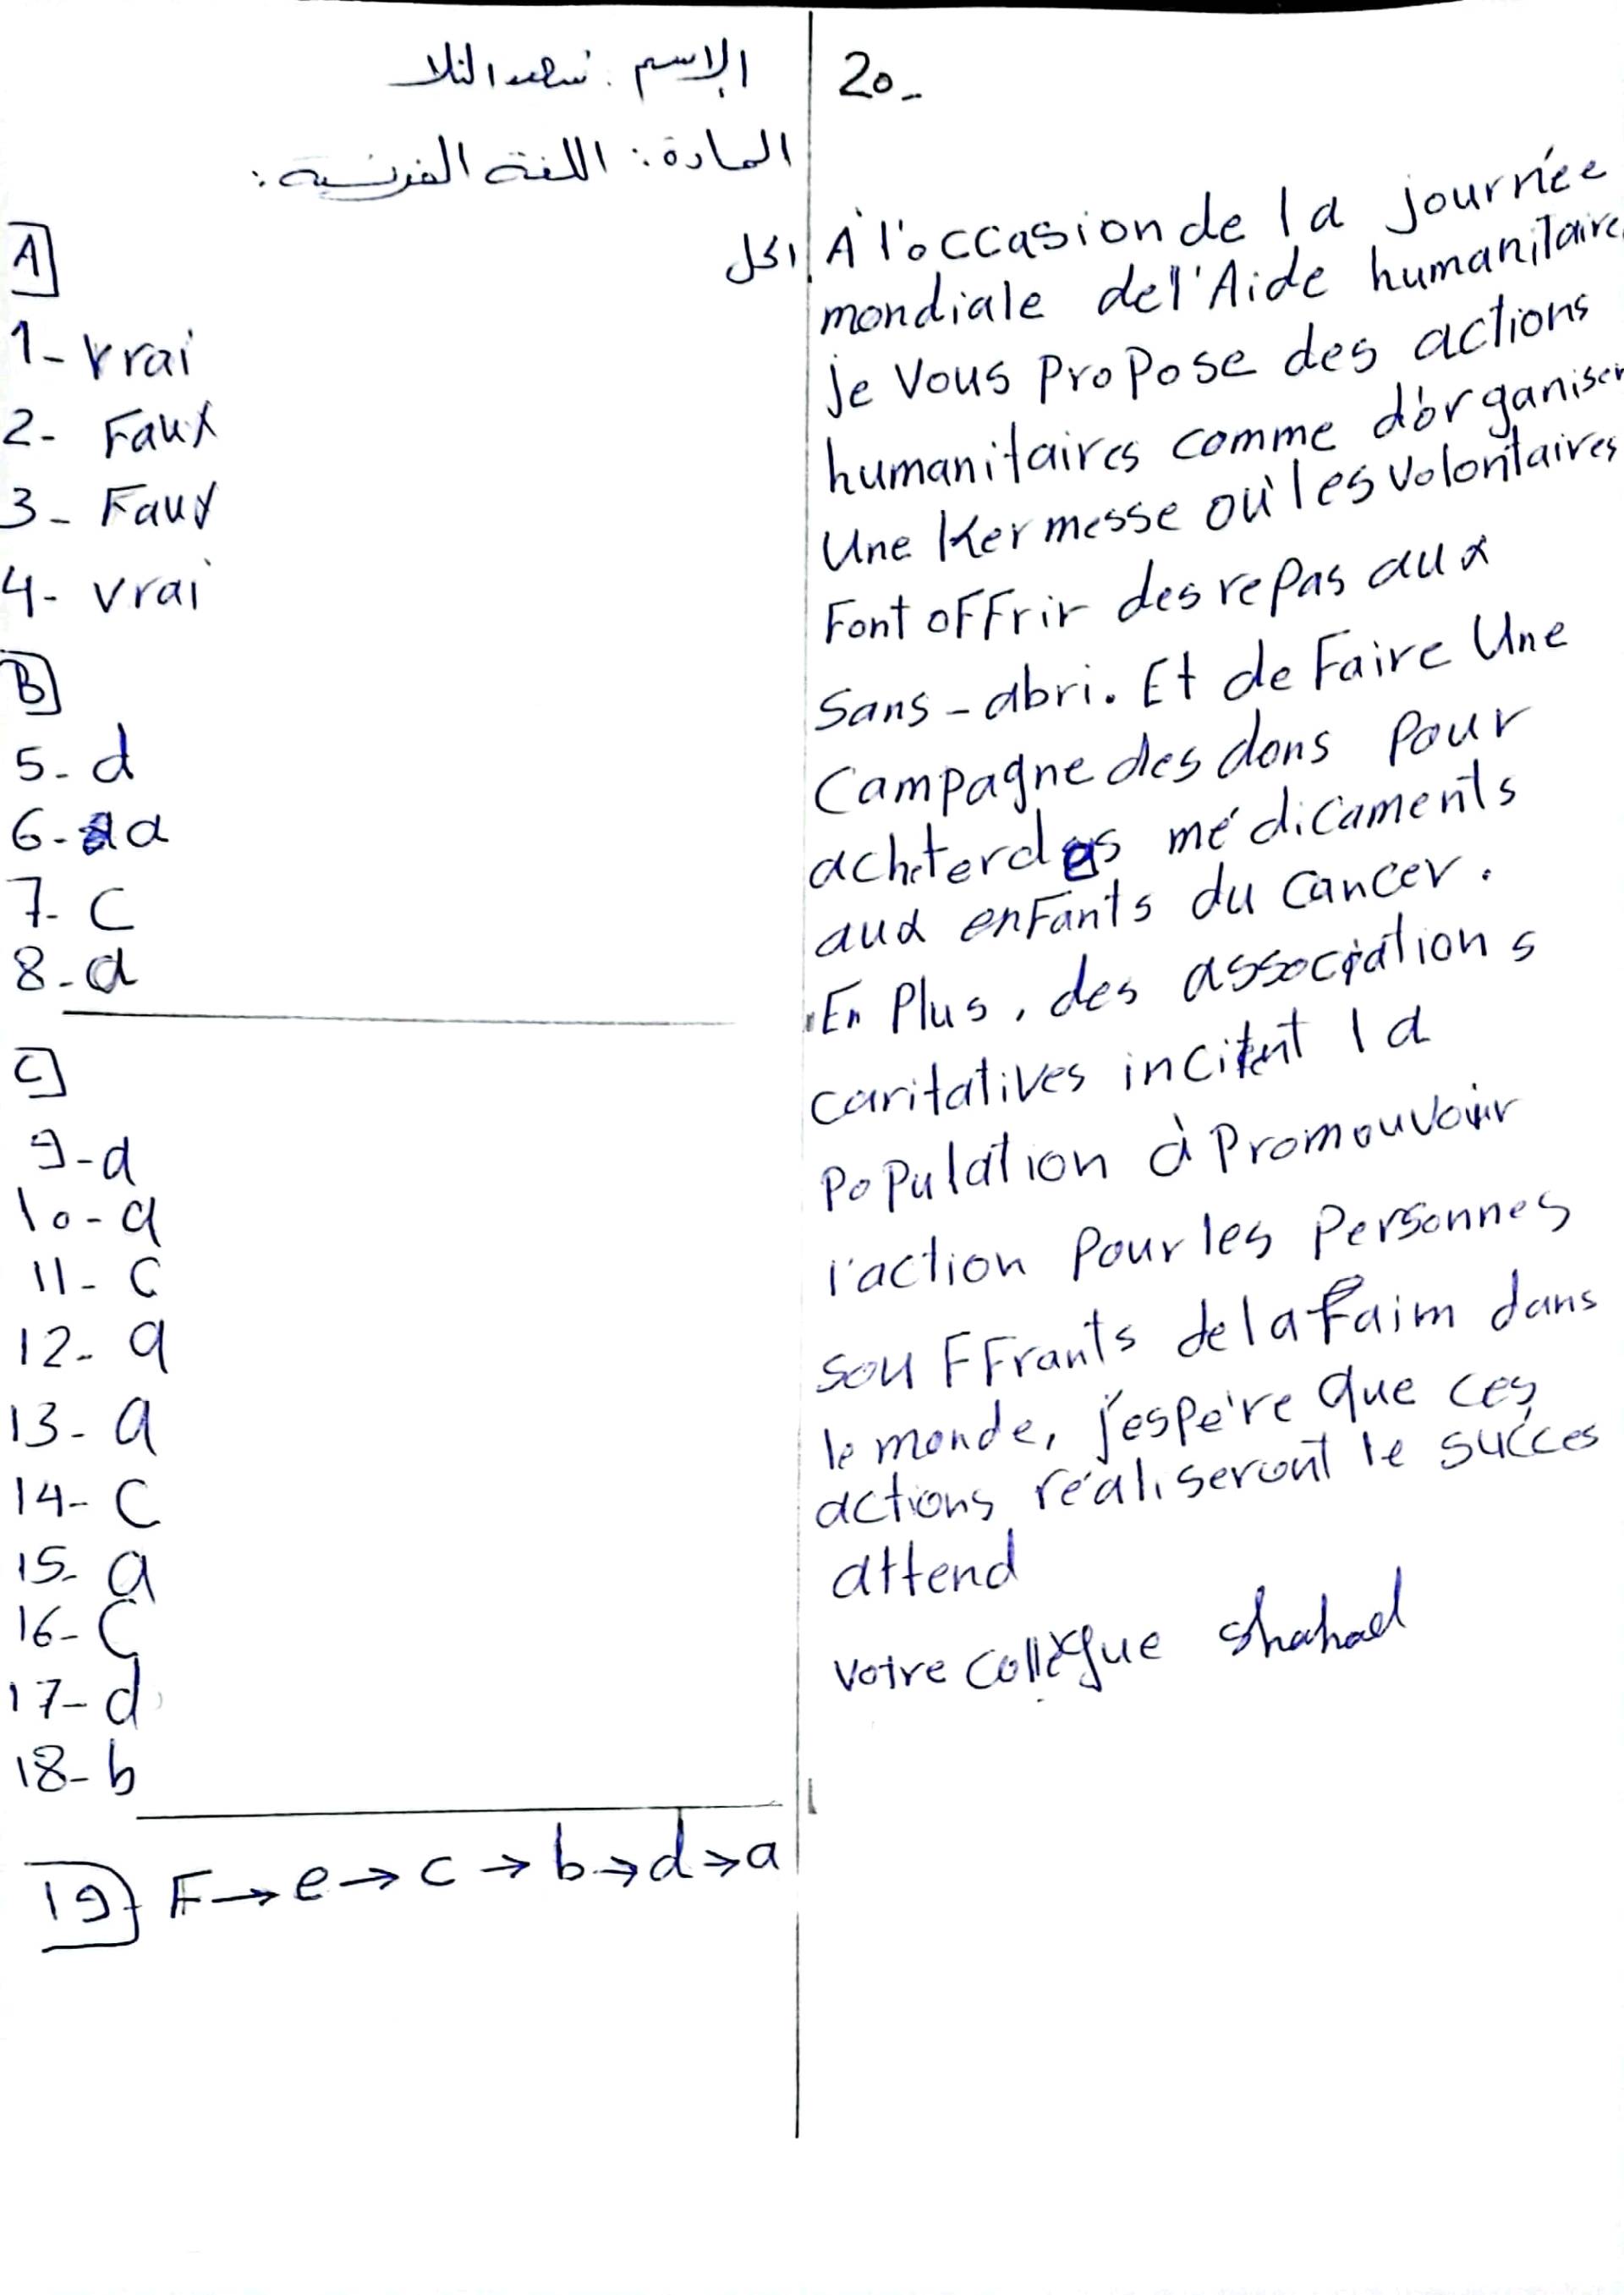 الاسم : شهد التلا
المادة : اللغة الفرنسية :
A
1- vrai
2- Faux
3- Faux
4- vrai
B
5- d
6- a
7- C
8- d
C
9- d
10- a
11- C
12- a
13- a
14- C
15- a
16- C
17- d
18- b
19 F → e → c → b → d → a
20-
À l'occasion de la journée
mondiale de l'Aide humanitaire
je vous propose des actions
humanitaires comme d'organiser
Une Kermesse où les volontaires
Font oFFrir des repas aux
Sans-abri. Et de Faire Une
Campagne des dons Pour
acheter des médicaments
aux enFants du cancer.
En Plus, des associations
caritatives incitent la
Population à Promouvoir
l'action Pour les Personnes
souFFrants de la Faim dans
le monde, j'espère que ces
actions réaliseront le succès
attend
votre collègue shahad